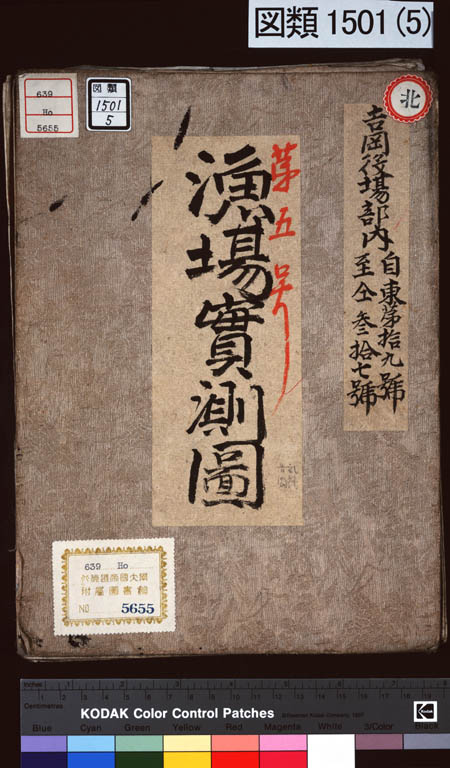 図類 1501 (5)
639
Ho
5655
図類
1501
5
北
吉岡役場部内
自東第拾九號
至仝叁拾七號
第五号
漁場實測圖
639 Ho
附屬圖書館
NO 5655
Inches
Centimetres
KODAK Color Control Patches
Kodak
Blue Cyan Green Yellow Red Magenta White 3/Color Black